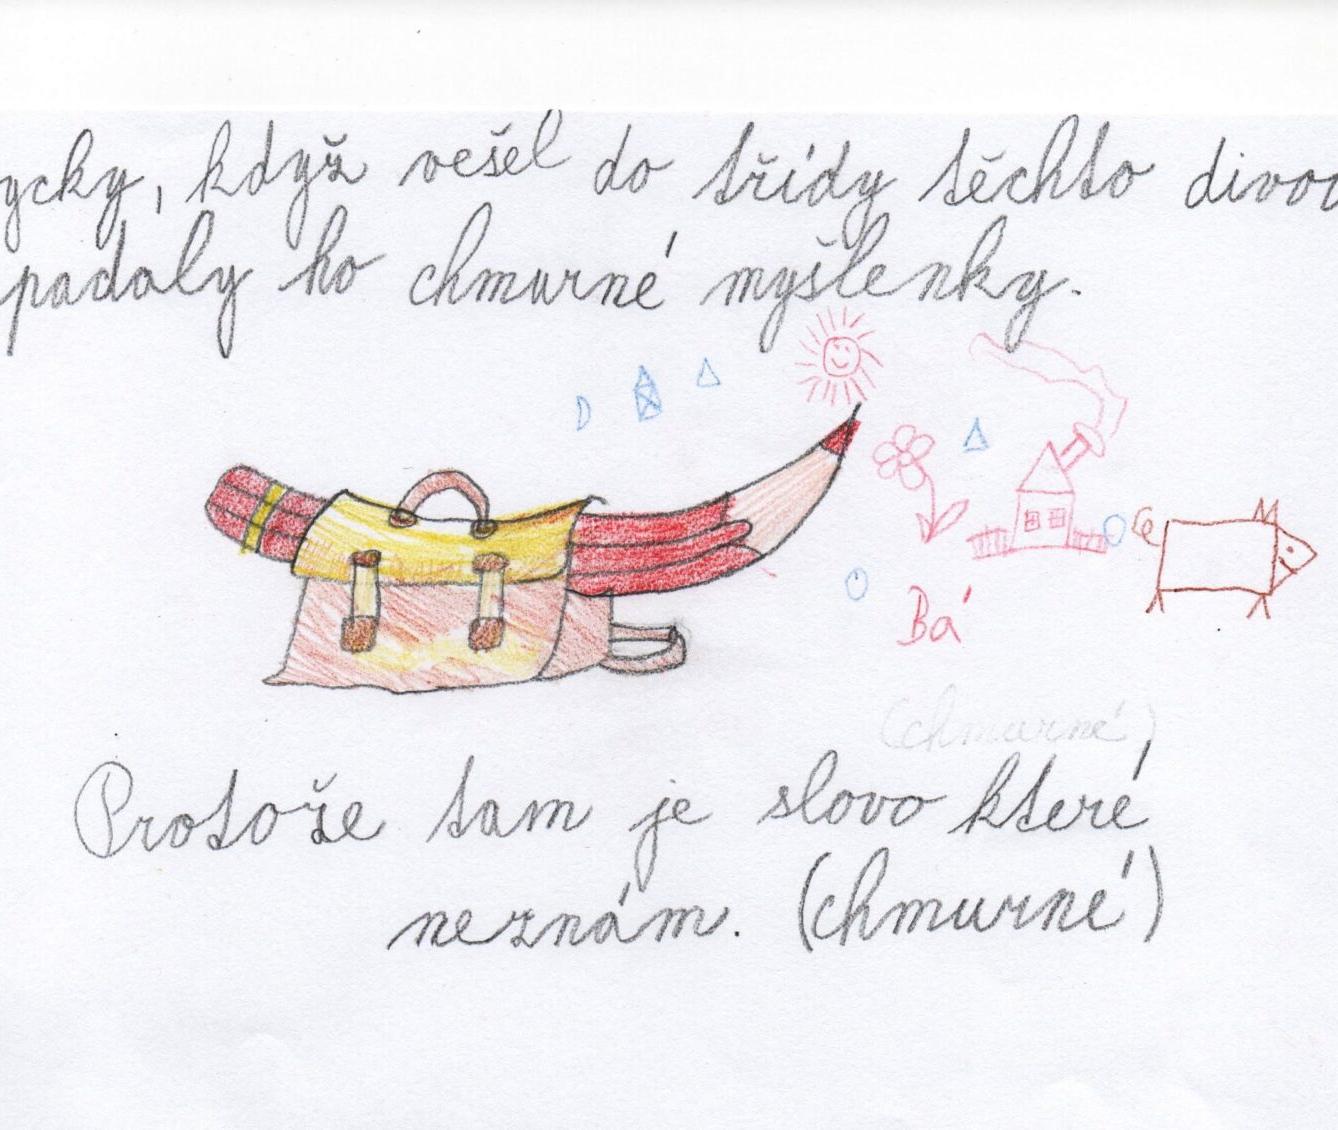 ycky, když vešel do třídy těchto divou
padaly ho chmurné myšlenky.
Bá
(chmurné)
Protože tam je slovo které
neznám. (chmurné)